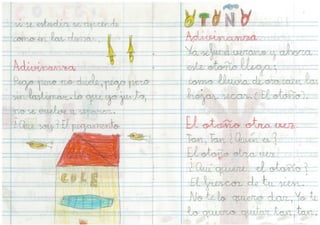 si se estudia se aprende
como en las demás.
Adivinanza
Pego pero no duele, pego pero
sin lastimar. Lo que yo junto,
no se vuelve a separar.
¿Que soy? El pegamento
COLE
OTOÑO
Adivinanza
Ya se fue el verano y ahora
este otoño llega;
como lluvia de oro caen las
hojas secas. (El otoño).
El otoño otra vez
Tan, tan ¿Quién es?
El otoño otra vez.
¿Qué quiere el otoño?
El frescor de tu sien.
No te lo quiero dar, Yo te
lo quiero quitar tan, tan.